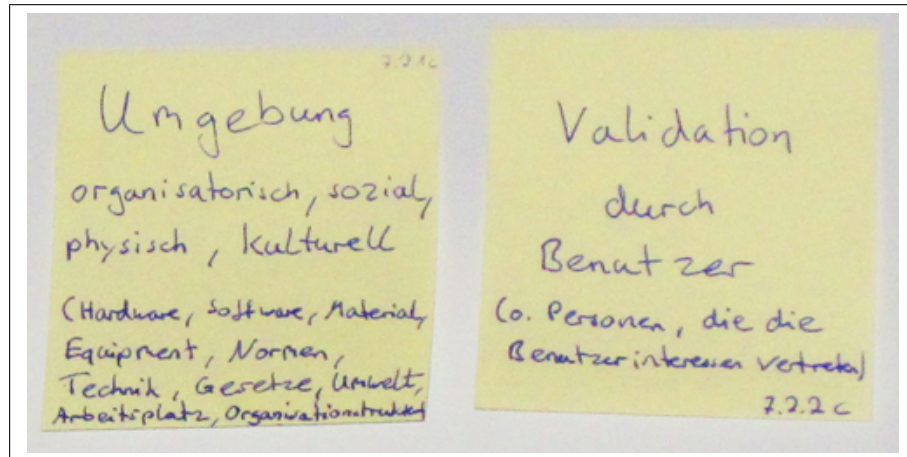 7.2.1c
Umgebung
organisatorisch, sozial,
physisch, kulturell
(Hardware, Software, Material,
Equipment, Normen,
Technik, Gesetze, Umwelt,
Arbeitsplatz, Organisationsstruktur)
Validation
durch
Benutzer
(o. Personen, die die
Benutzerinteressen vertreten)
7.2.2 c